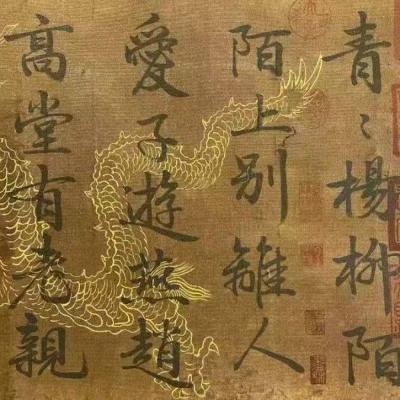 青〻楊柳陌
陌上别離人
愛子遊燕趙
高堂有老親